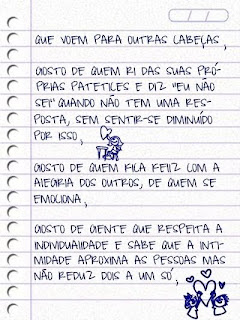 QUE VOEM PARA OUTRAS CABEÇAS,
GOSTO DE QUEM RI DAS SUAS PRÓ-
PRIAS PATETICES E DIZ "EU NÃO
SEI" QUANDO NÃO TEM UMA RES-
POSTA, SEM SENTIR-SE DIMINUÍDO
POR ISSO,
GOSTO DE QUEM FICA FELIZ COM A
ALEGRIA DOS OUTROS, DE QUEM SE
EMOCIONA,
GOSTO DE GENTE QUE RESPEITA A
INDIVIDUALIDADE E SABE QUE A INTI-
MIDADE APROXIMA AS PESSOAS MAS
NÃO REDUZ DOIS A UM SÓ,